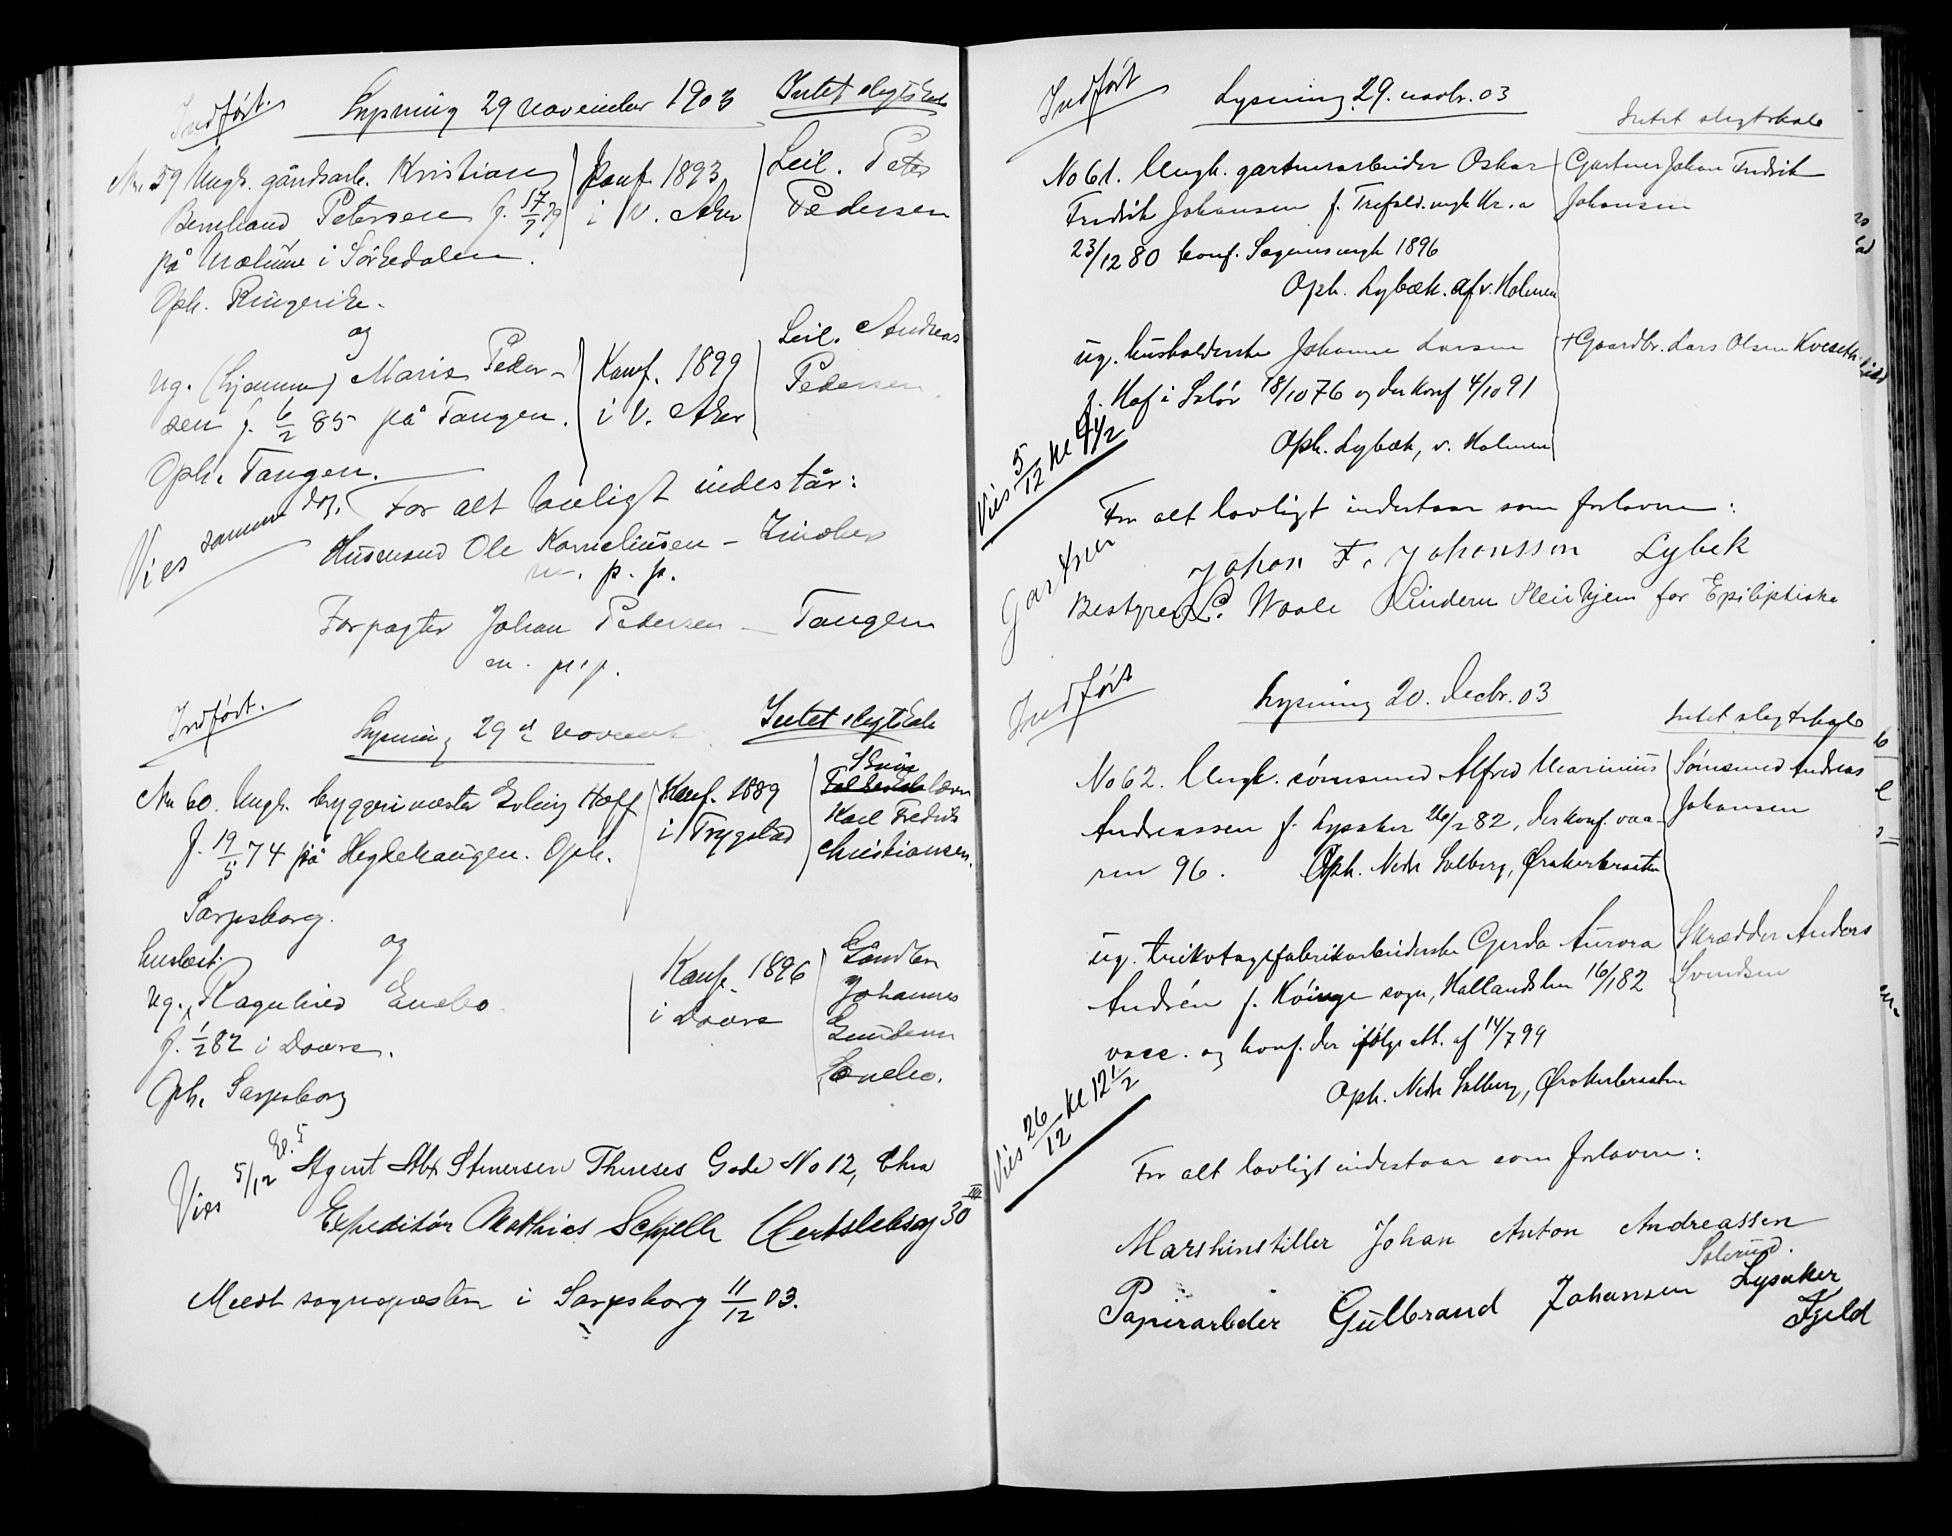 Indført.
Lysning 29 november 1903
Intet slegtskab
No. 59 Ungk. gårdsarb. Kristian
Bernhard Petersen f. 17/2 79
på                 i Sørkedalen.
Oph. Ringerike.
Konf. 1893
i V. Aker
Leil. Peter
Pedersen
og
ug. (hjemme) Marie Peder-
sen f. 6/2 85 på Tangen.
Oph. Tangen.
Konf. 1899
i V. Aker
Leil. Andreas
Pedersen
Vies samme dag.
For alt lovligt indestår:
Husmand Ole Korneliusen –
m. p. p.
Forpagter Johan Pedersen – Tangen
m. p. p.
Indført.
Lysning 29de novemb
Intet slegtskab
No 60. Ungk. bryggerimester Erling Hoff
f. 19/5 74 på Hegdehaugen. Oph.
Sarpsborg.
Konf. 1889
i Trygstad
Karl Fredrik
Christiansen.
og
husbest.
ug. Ragnhild Enebo
f. 1/2 82 i Dovre.
Oph. Sarpsborg
Konf. 1896
i Dovre
Johannes
Enebo.
Vies 5/12 kl. 5
Agent Alex Stenersen Thereses Gade No 12, Chra
Expeditør Mathias Schjelle Hertslebsg 30 III
Meldt sognepresten i Sarpsborg 11/12 03.
Indført
Lysning 29. novbr. 03
Intet slegtskab
No 61. Ungk. gartnerarbeider Oskar
Fredrik Johansen f. Trefold.mgh Kr.a
23/12 80 konf. Sagenes mgh 1896
Oph. Lybæk. af v. Holmen
Gartner Johan Fredrik
Johansen
ug. husholderske Johanne Larsen
f. Hof i Solør 18/10 76 og der konf 4/10 91
Oph. Lybæk, v. Holmen
† Gaardbr. Lars Olsen
Vies 5/12 kl 4 1/2
For alt lovligt indestaar som forlovere:
Gartner Johan F. Johansson Lybek
Bestyrer L. Waale Lindern Pleiehjem for Epiliptiske
Indført
Lysning 20. decbr. 03
Intet slegtskab
No 62. Ungk. sømsmed Alfred Marinius
Andreassen f. Lysaker 26/2 82, der konf. vaa-
ren 96. Oph. Nedr Solberg, Ørakerbraaten
Sømsmed Andreas
Johansen
ug. trikotagefabrikarbeiderske Gerda Aurora
Andrén f. Köinge sogn, Hallands len 16/1 82
vacc. og konf. der ifølge att. af 14/7 99
Oph. Nedr Solberg, Ørakerbraaten
Skrædder Anders
Svendsen
Vies 26/12 kl 12 1/2
For alt lovligt indestaar som forlovere:
Marskinstiller Johan Anton Andreassen
Solerud.
Lysaker
Papirarbeder Gulbrand Johansen
Fjeld